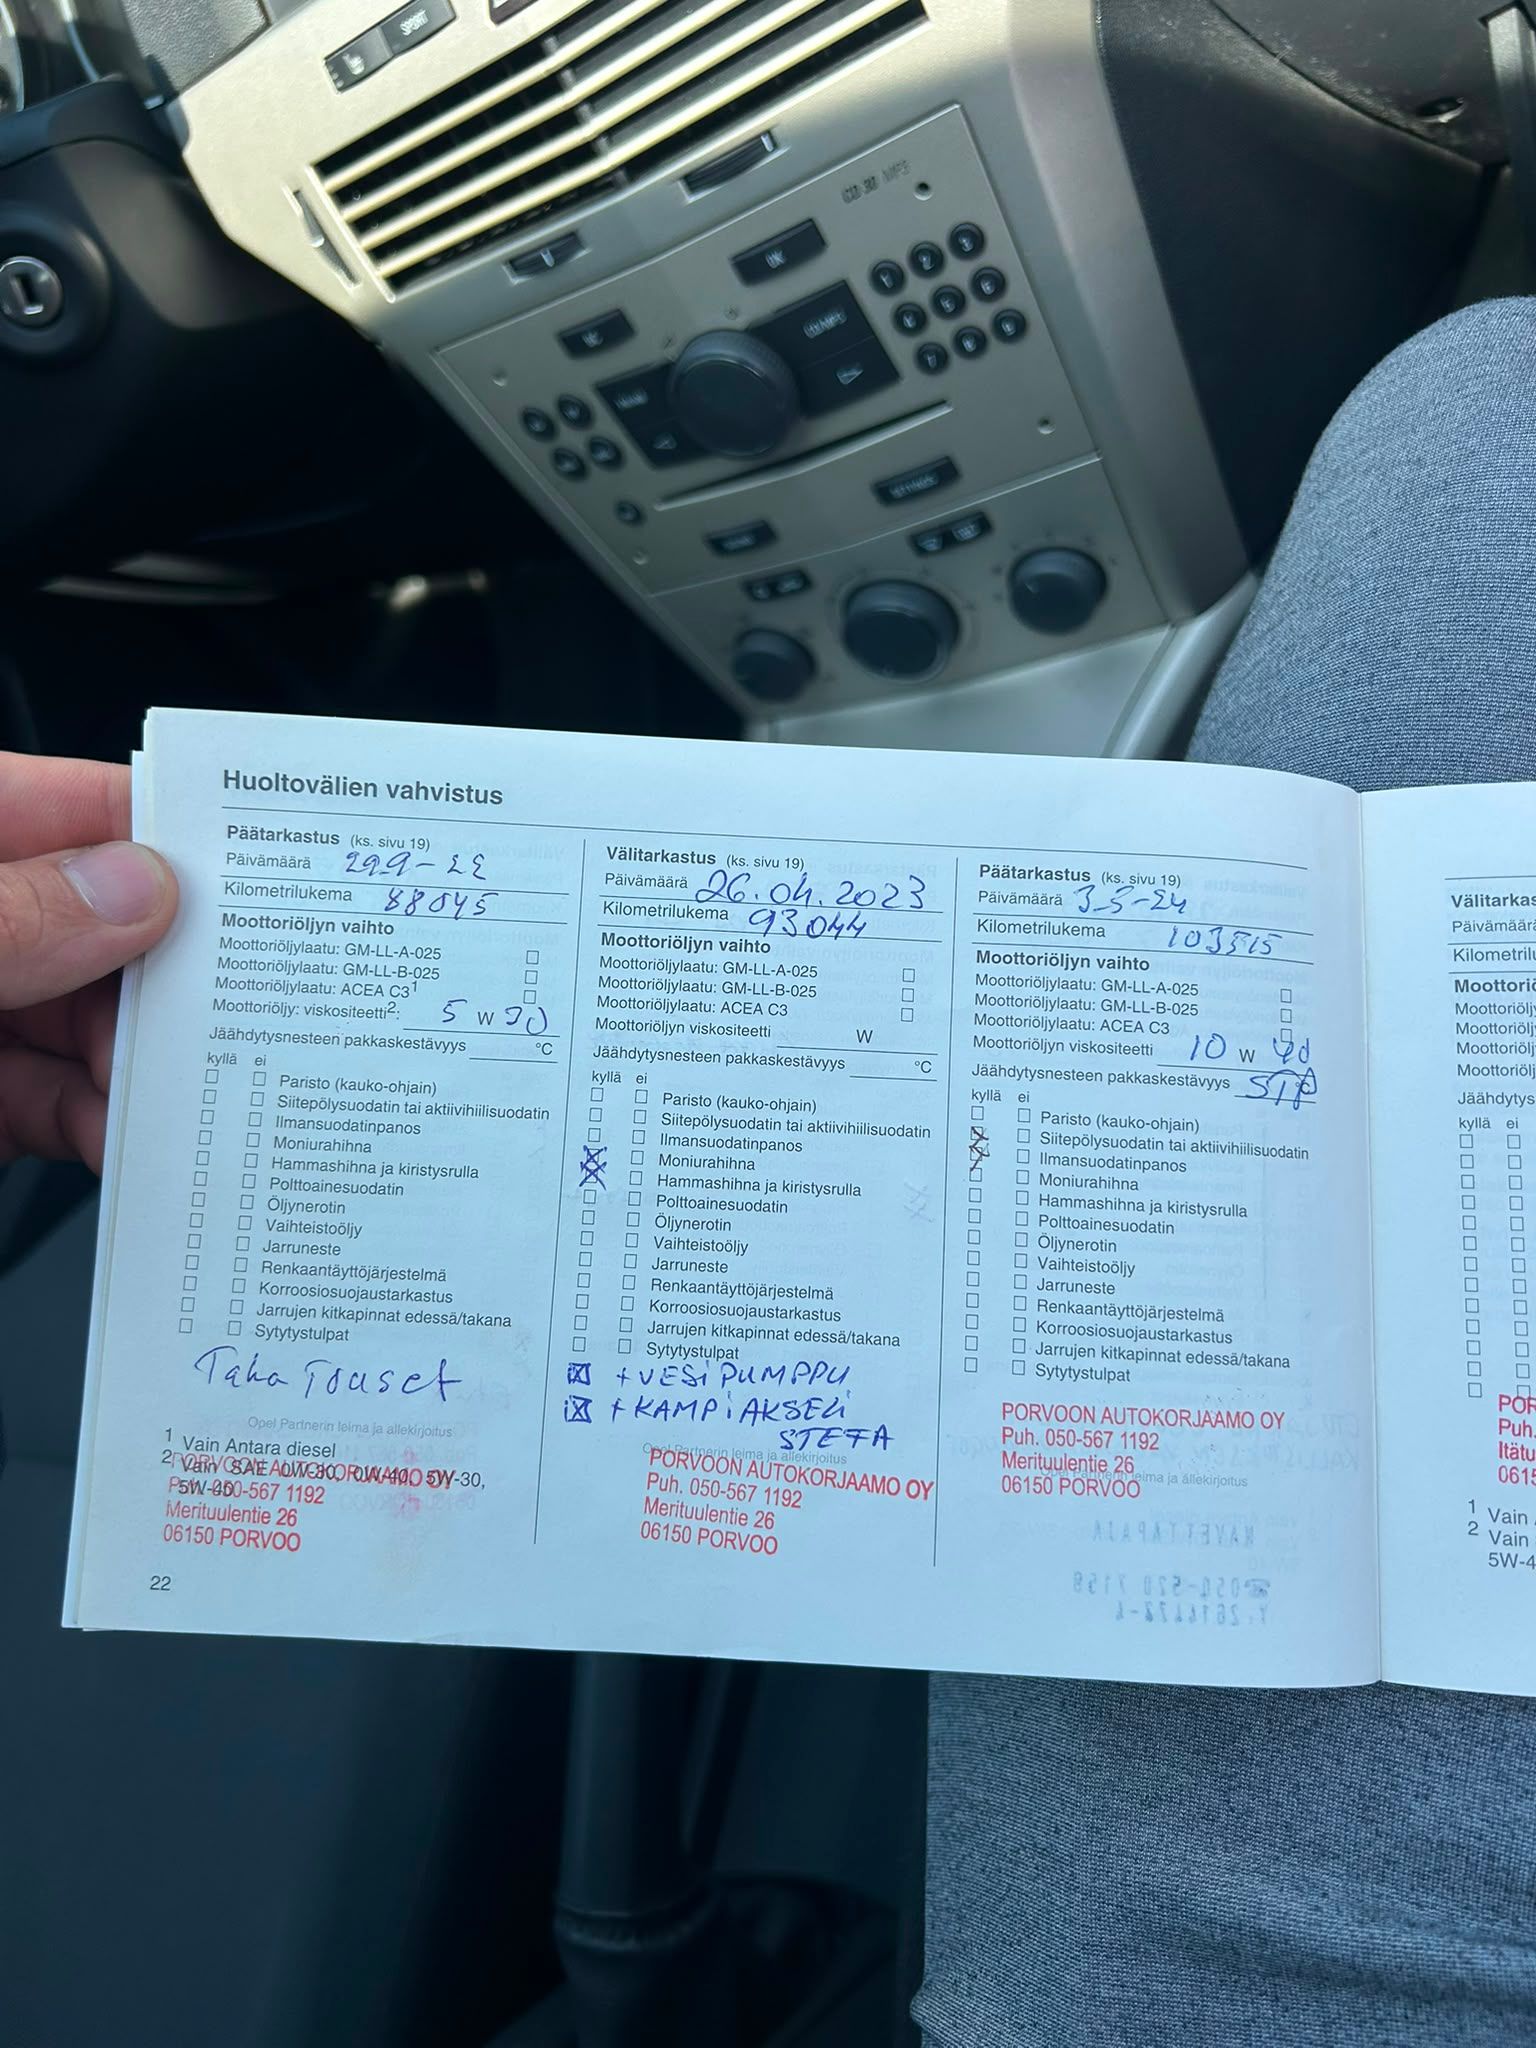 SPORT
CD 30 MP3
SETTINGS
Huoltovälien vahvistus
Päätarkastus (ks. sivu 19)
Päivämäärä 29.9-22
Kilometrilukema 88045
Moottoriöljyn vaihto
Moottoriöljylaatu: GM-LL-A-025
Moottoriöljylaatu: GM-LL-B-025
Moottoriöljylaatu: ACEA C3 1
Moottoriöljy: viskositeetti2: 5 W 30
Jäähdytysnesteen pakkaskestävyys °C
kyllä ei
Paristo (kauko-ohjain)
Siitepölysuodatin tai aktiivihiilisuodatin
Ilmansuodatinpanos
Moniurahihna
Hammashihna ja kiristysrulla
Polttoainesuodatin
Öljynerotin
Vaihteistoöljy
Jarruneste
Renkaantäyttöjärjestelmä
Korroosiosuojaustarkastus
Jarrujen kitkapinnat edessä/takana
Sytytystulpat
Taka
Opel Partnerin leima ja allekirjoitus
1 Vain Antara diesel
2 Vain SAE 0W-30, 0W-40, 5W-30,
5W-40
PORVOON AUTOKORJAAMO OY
Puh. 050-567 1192
Merituulentie 26
06150 PORVOO
22
Välitarkastus (ks. sivu 19)
Päivämäärä 26.04.2023
Kilometrilukema 93044
Moottoriöljyn vaihto
Moottoriöljylaatu: GM-LL-A-025
Moottoriöljylaatu: GM-LL-B-025
Moottoriöljylaatu: ACEA C3
Moottoriöljyn viskositeetti W
Jäähdytysnesteen pakkaskestävyys °C
kyllä ei
Paristo (kauko-ohjain)
Siitepölysuodatin tai aktiivihiilisuodatin
Ilmansuodatinpanos
Moniurahihna
Hammashihna ja kiristysrulla
Polttoainesuodatin
Öljynerotin
Vaihteistoöljy
Jarruneste
Renkaantäyttöjärjestelmä
Korroosiosuojaustarkastus
Jarrujen kitkapinnat edessä/takana
Sytytystulpat
+ VESIPUMPPU
+ KAMPIAKSELI
STEFA
Opel Partnerin leima ja allekirjoitus
PORVOON AUTOKORJAAMO OY
Puh. 050-567 1192
Merituulentie 26
06150 PORVOO
Päätarkastus (ks. sivu 19)
Päivämäärä 3-5-24
Kilometrilukema
Moottoriöljyn vaihto
Moottoriöljylaatu: GM-LL-A-025
Moottoriöljylaatu: GM-LL-B-025
Moottoriöljylaatu: ACEA C3
Moottoriöljyn viskositeetti 10 W 40
Jäähdytysnesteen pakkaskestävyys STP °C
kyllä ei
Paristo (kauko-ohjain)
Siitepölysuodatin tai aktiivihiilisuodatin
Ilmansuodatinpanos
Moniurahihna
Hammashihna ja kiristysrulla
Polttoainesuodatin
Öljynerotin
Vaihteistoöljy
Jarruneste
Renkaantäyttöjärjestelmä
Korroosiosuojaustarkastus
Jarrujen kitkapinnat edessä/takana
Sytytystulpat
PORVOON AUTOKORJAAMO OY
Puh. 050-567 1192
Opel Partnerin leima ja allekirjoitus
Merituulentie 26
06150 PORVOO
Välitarkas
Päivämäärä
Kilometrilu
Moottoriö
Moottoriöljy
Moottoriöljy
Moottoriöljy
Moottoriöljy
Jäähdytys
kyllä ei
POR
Puh.
Itätu
0615
1 Vain
2 Vain
5W-4